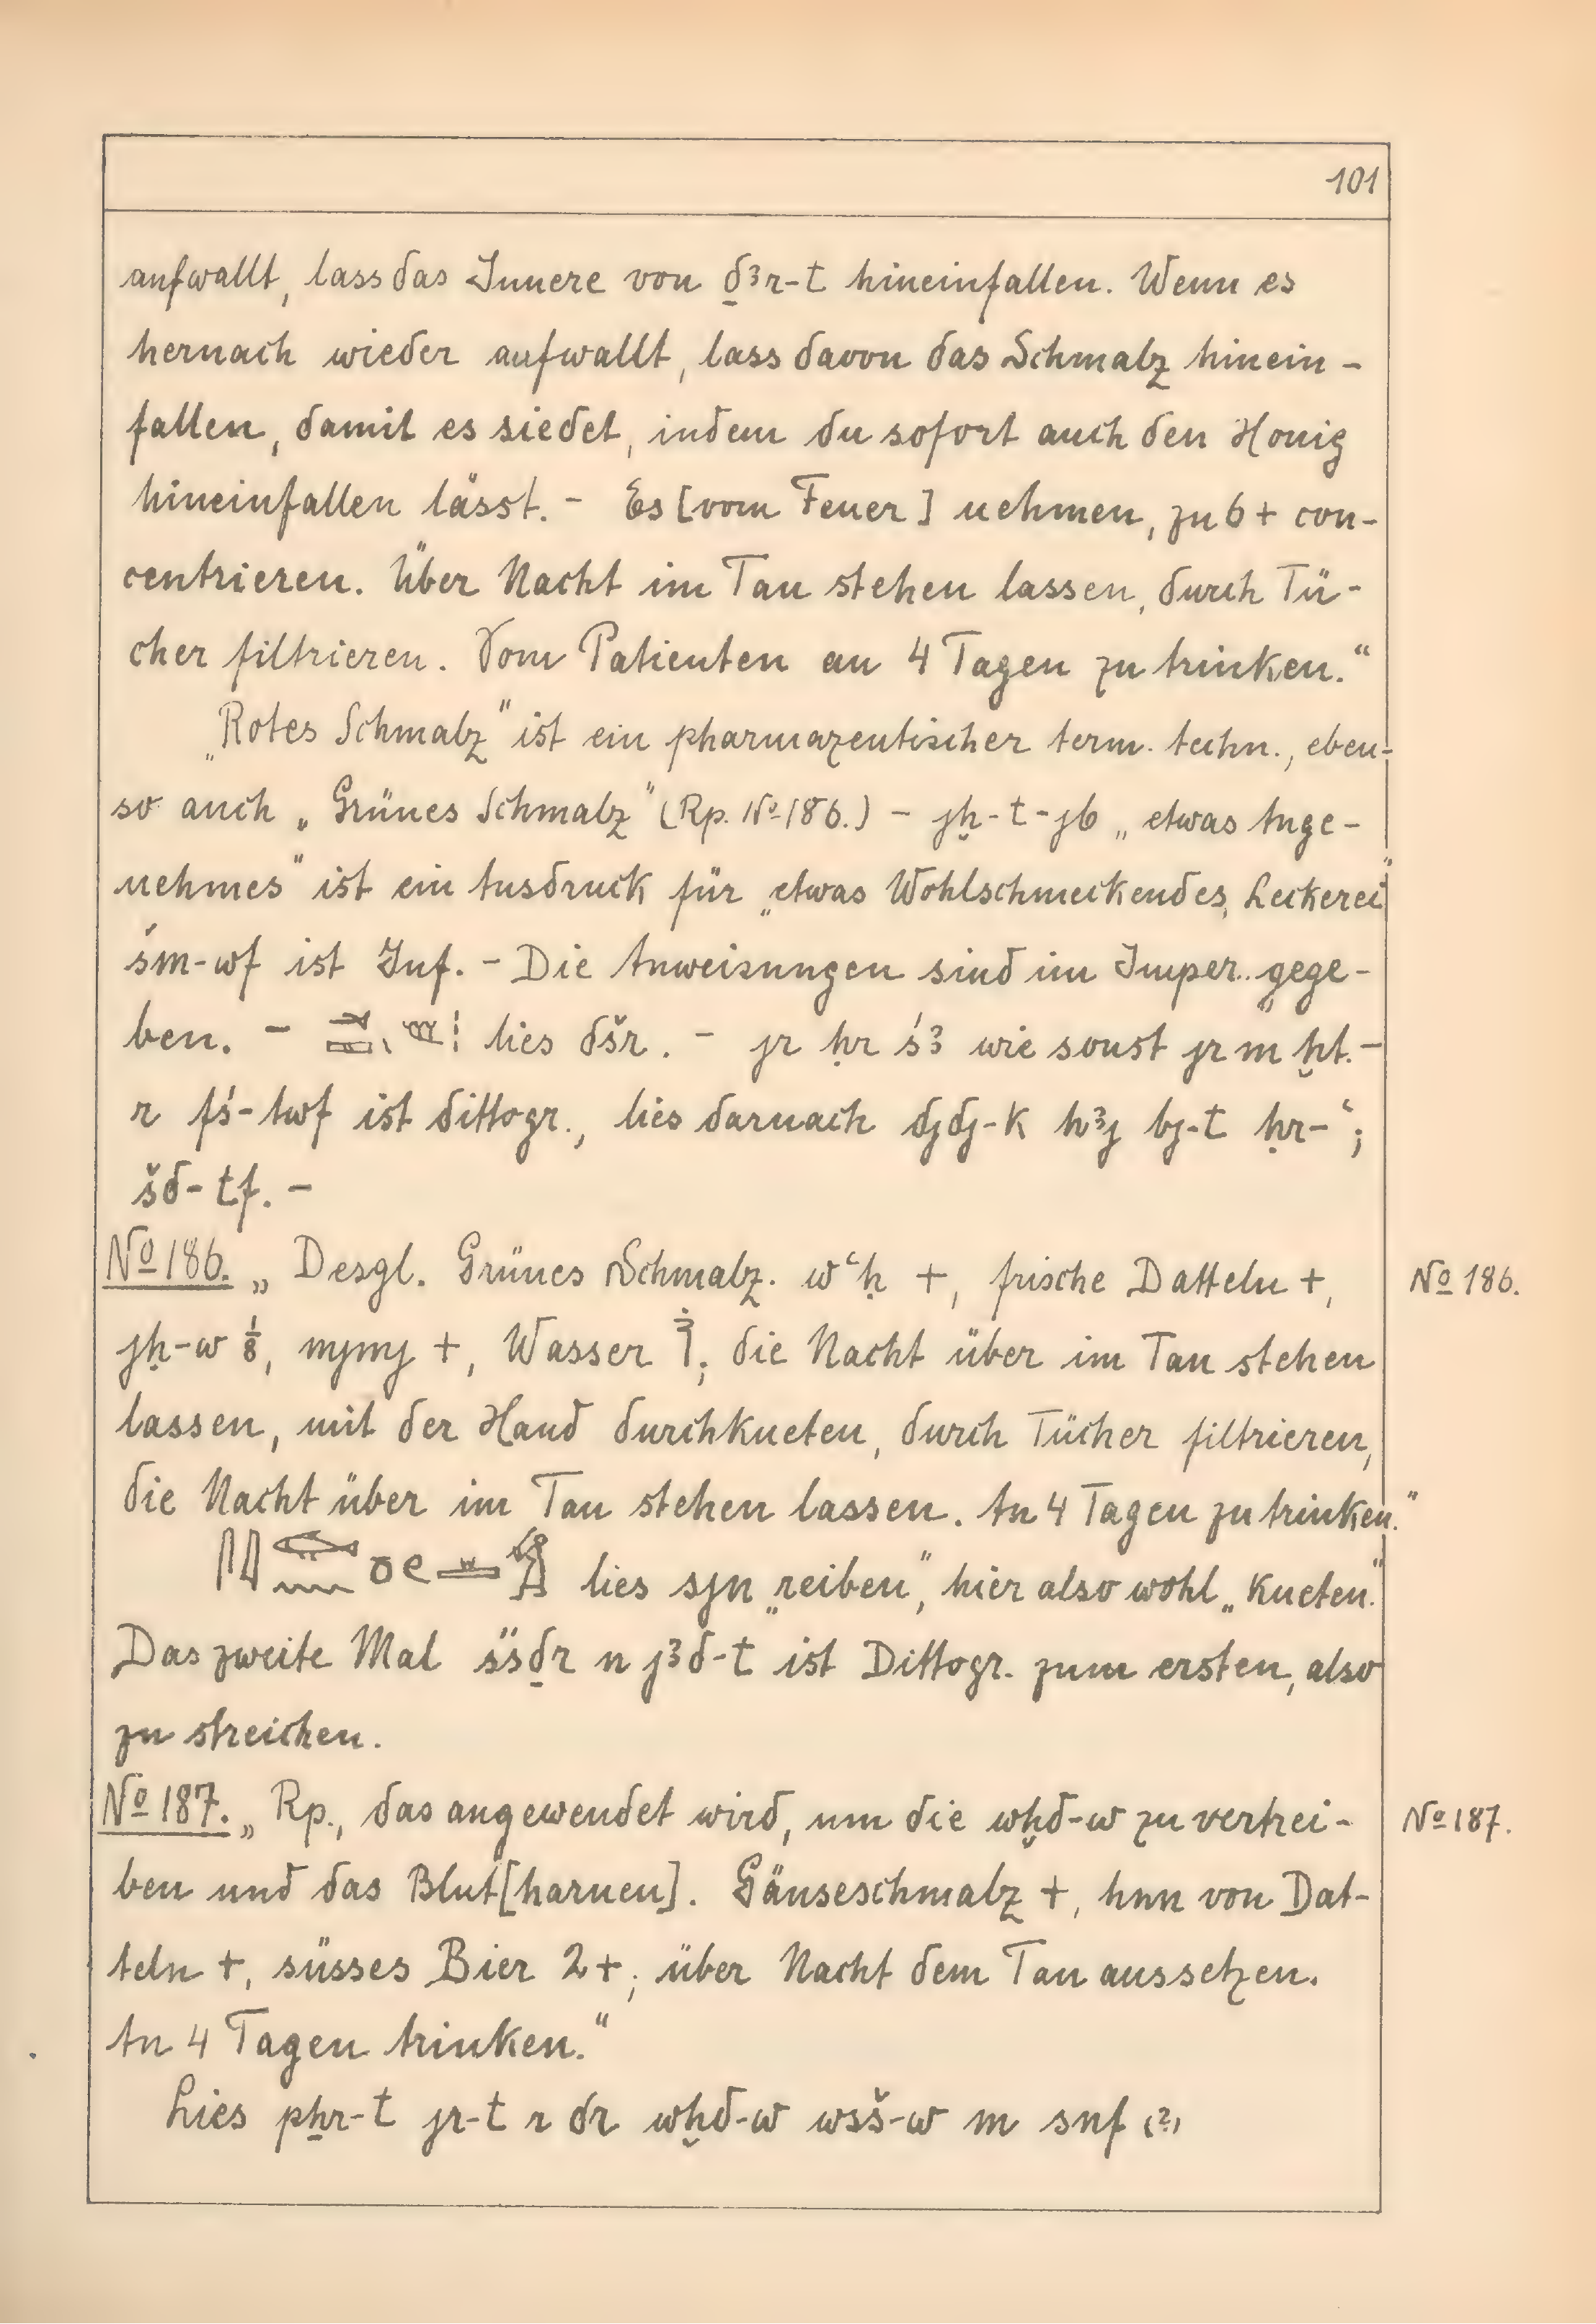 101
aufwallt, lass das Innere von ḏ3r-t hineinfallen. Wenn es
hernach wieder aufwallt, lass davon das Schmalz hinein-
fallen, damit es siedet, indem du sofort auch den Honig
hineinfallen lässt. - Es [vom Feuer] nehmen, zu 6+ con-
centrieren. Über Nacht im Tau stehen lassen, durch Tü-
cher filtrieren. Vom Patienten an 4 Tagen zu trinken.“
„Rotes Schmalz“ ist ein pharmazeutischer term. techn., eben-
so auch „Grünes Schmalz“ (Rp. No 186.) - jḫ-t-jb „etwas Ange-
nehmes“ ist ein Ausdruck für „etwas Wohlschmeckendes, Leckerei“
śm-wf ist Inf. - Die Anweisungen sind im Imper. gege-
ben. - lies dšr. - jr ḥr ś3 wie sonst jr m ḫt. -
r fś-twf ist dittogr., lies darnach djdj-k h3j bj-t ḥr-ʿ;
šd-tf. -
No 186. „Desgl. Grünes Schmalz. wʿḥ +, frische Datteln +,
jḥ-w ⅛, mjmj +, Wasser ; die Nacht über im Tau stehen
lassen, mit der Hand durchkneten, durch Tücher filtrieren,
die Nacht über im Tau stehen lassen. An 4 Tagen zu trinken.“
No 186.
lies sjn „reiben“, hier also wohl „kneten.“
Das zweite Mal śśḏr n j3d-t ist Dittogr. zum ersten, also
zu streichen.
No 187. „Rp., das angewendet wird, um die wḫd-w zu vertrei-
ben und das Blut[harnen]. Gänseschmalz +, hnn von Dat-
teln +, süsses Bier 2+; über Nacht dem Tau aussetzen.
An 4 Tagen trinken.“
No 187.
Lies pẖr-t jr-t r dr wḫd-w wsš-w m snf (?)